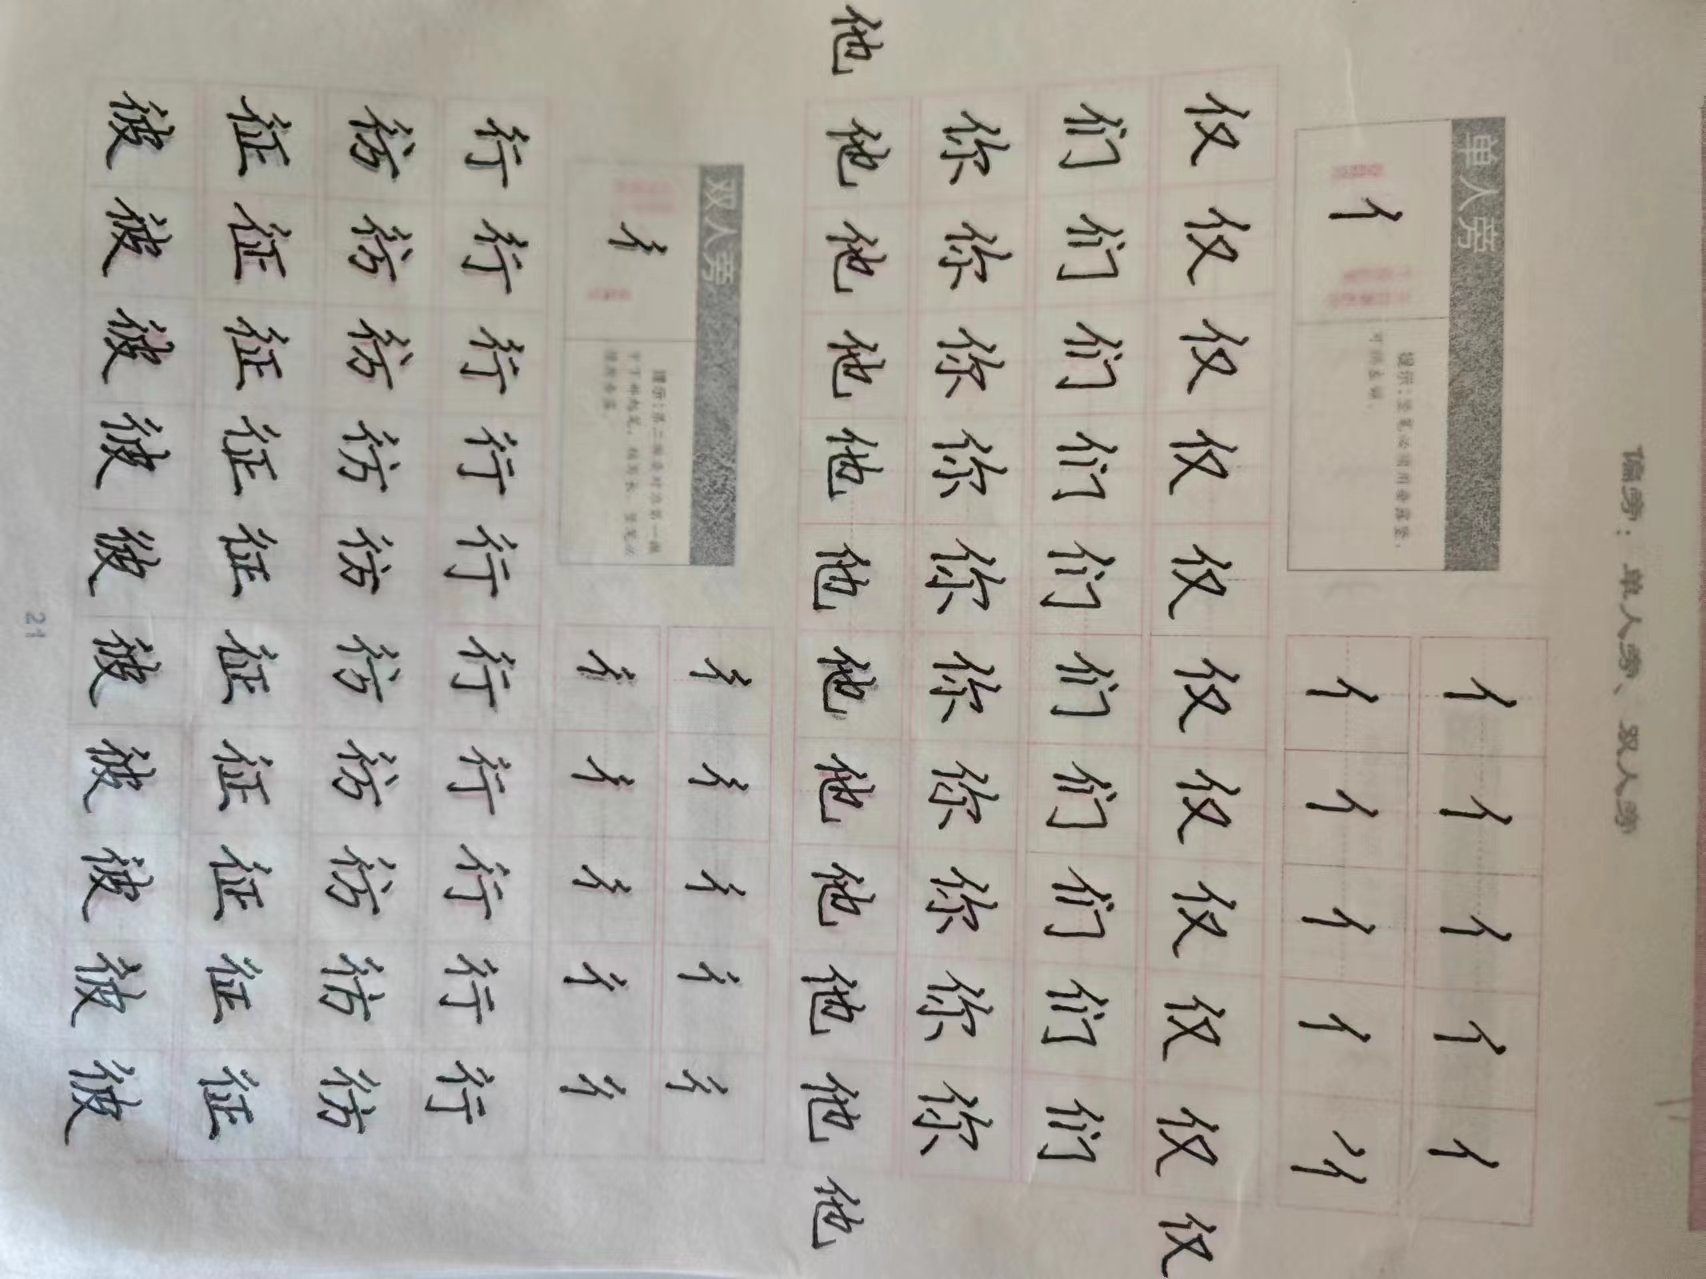 偏旁：单人旁、双人旁
单人旁
亻
提示：竖笔必须用垂露竖，
亻亻亻亻亻
亻亻亻亻彳
仅仅仅仅仅仅仅仅仅仅仅
们们们们们们们们们们
你你你你你你你你你你
他他他他他他他他他他他他
双人旁
彳
提示：第二撇要对准第一撇
彳彳彳彳彳
彳彳彳彳彳
行行行行行行行行行行
彷彷彷彷彷彷彷彷彷彷
征征征征征征征征征征
彼彼彼彼彼彼彼彼彼彼
21